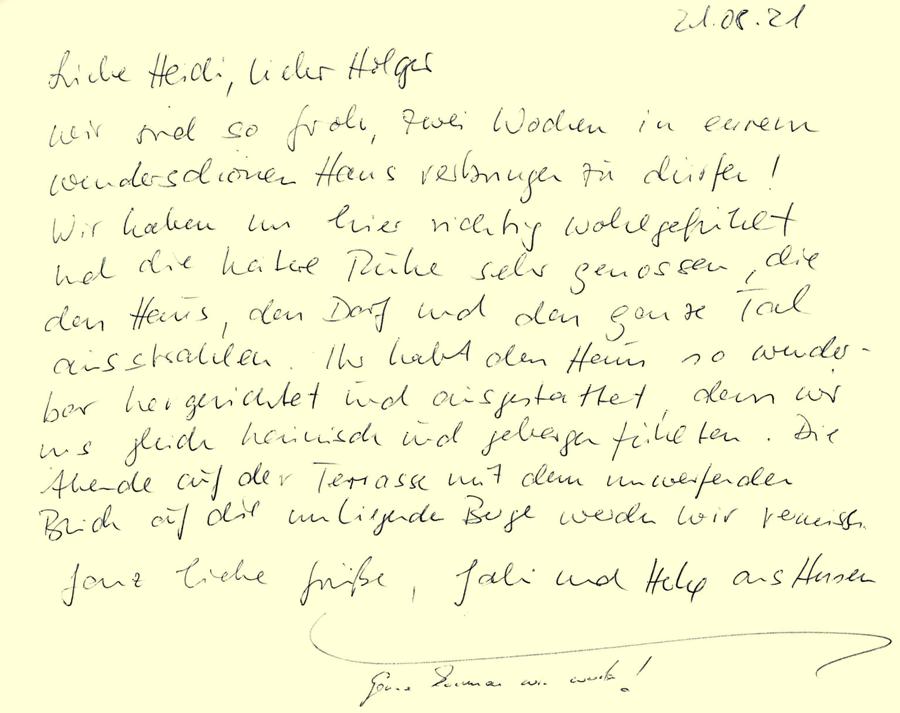 21.08.21
Liebe Heidi, lieber Holger
wir sind so froh, zwei Wochen in eurem
wunderschönen Haus verbringen zu dürfen!
Wir haben uns hier richtig wohlgefühlt
und die Ruhe sehr genossen, die
das Haus, das Dorf und das ganze Tal
ausstrahlen. Ihr habt das Haus so wunder-
bar hergerichtet und ausgestattet, dass wir
uns gleich heimisch und geborgen fühlten. Die
Abende auf der Terrasse mit dem umwerfenden
Blick auf die umliegende Berge werden wir vermiss.
Ganz liebe Grüße, und aus Hessen